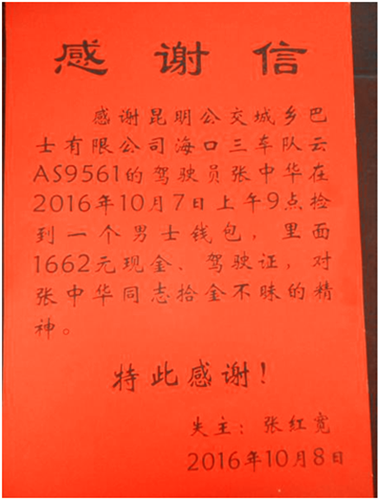 感谢信
感谢昆明公交城乡巴
士有限公司海口三车队云
AS9561的驾驶员张中华在
2016年10月7日上午9点捡
到一个男士钱包，里面
1662元现金、驾驶证，对
张中华同志拾金不昧的精
神。
特此感谢！
失主：张红宽
2016年10月8日